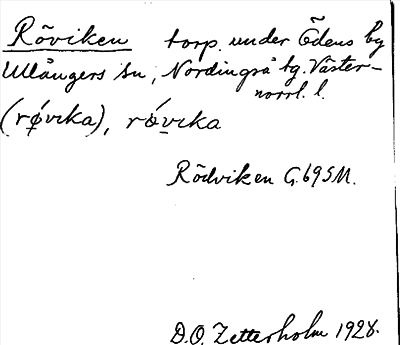 Röviken torp. under Ödens by
Ullångers sn, Nordingrå tg. Väster-
norrl. l.
(rǿvika), rǿvika
Rödviken G.69 S.M.
D.O. Zetterholm 1928.